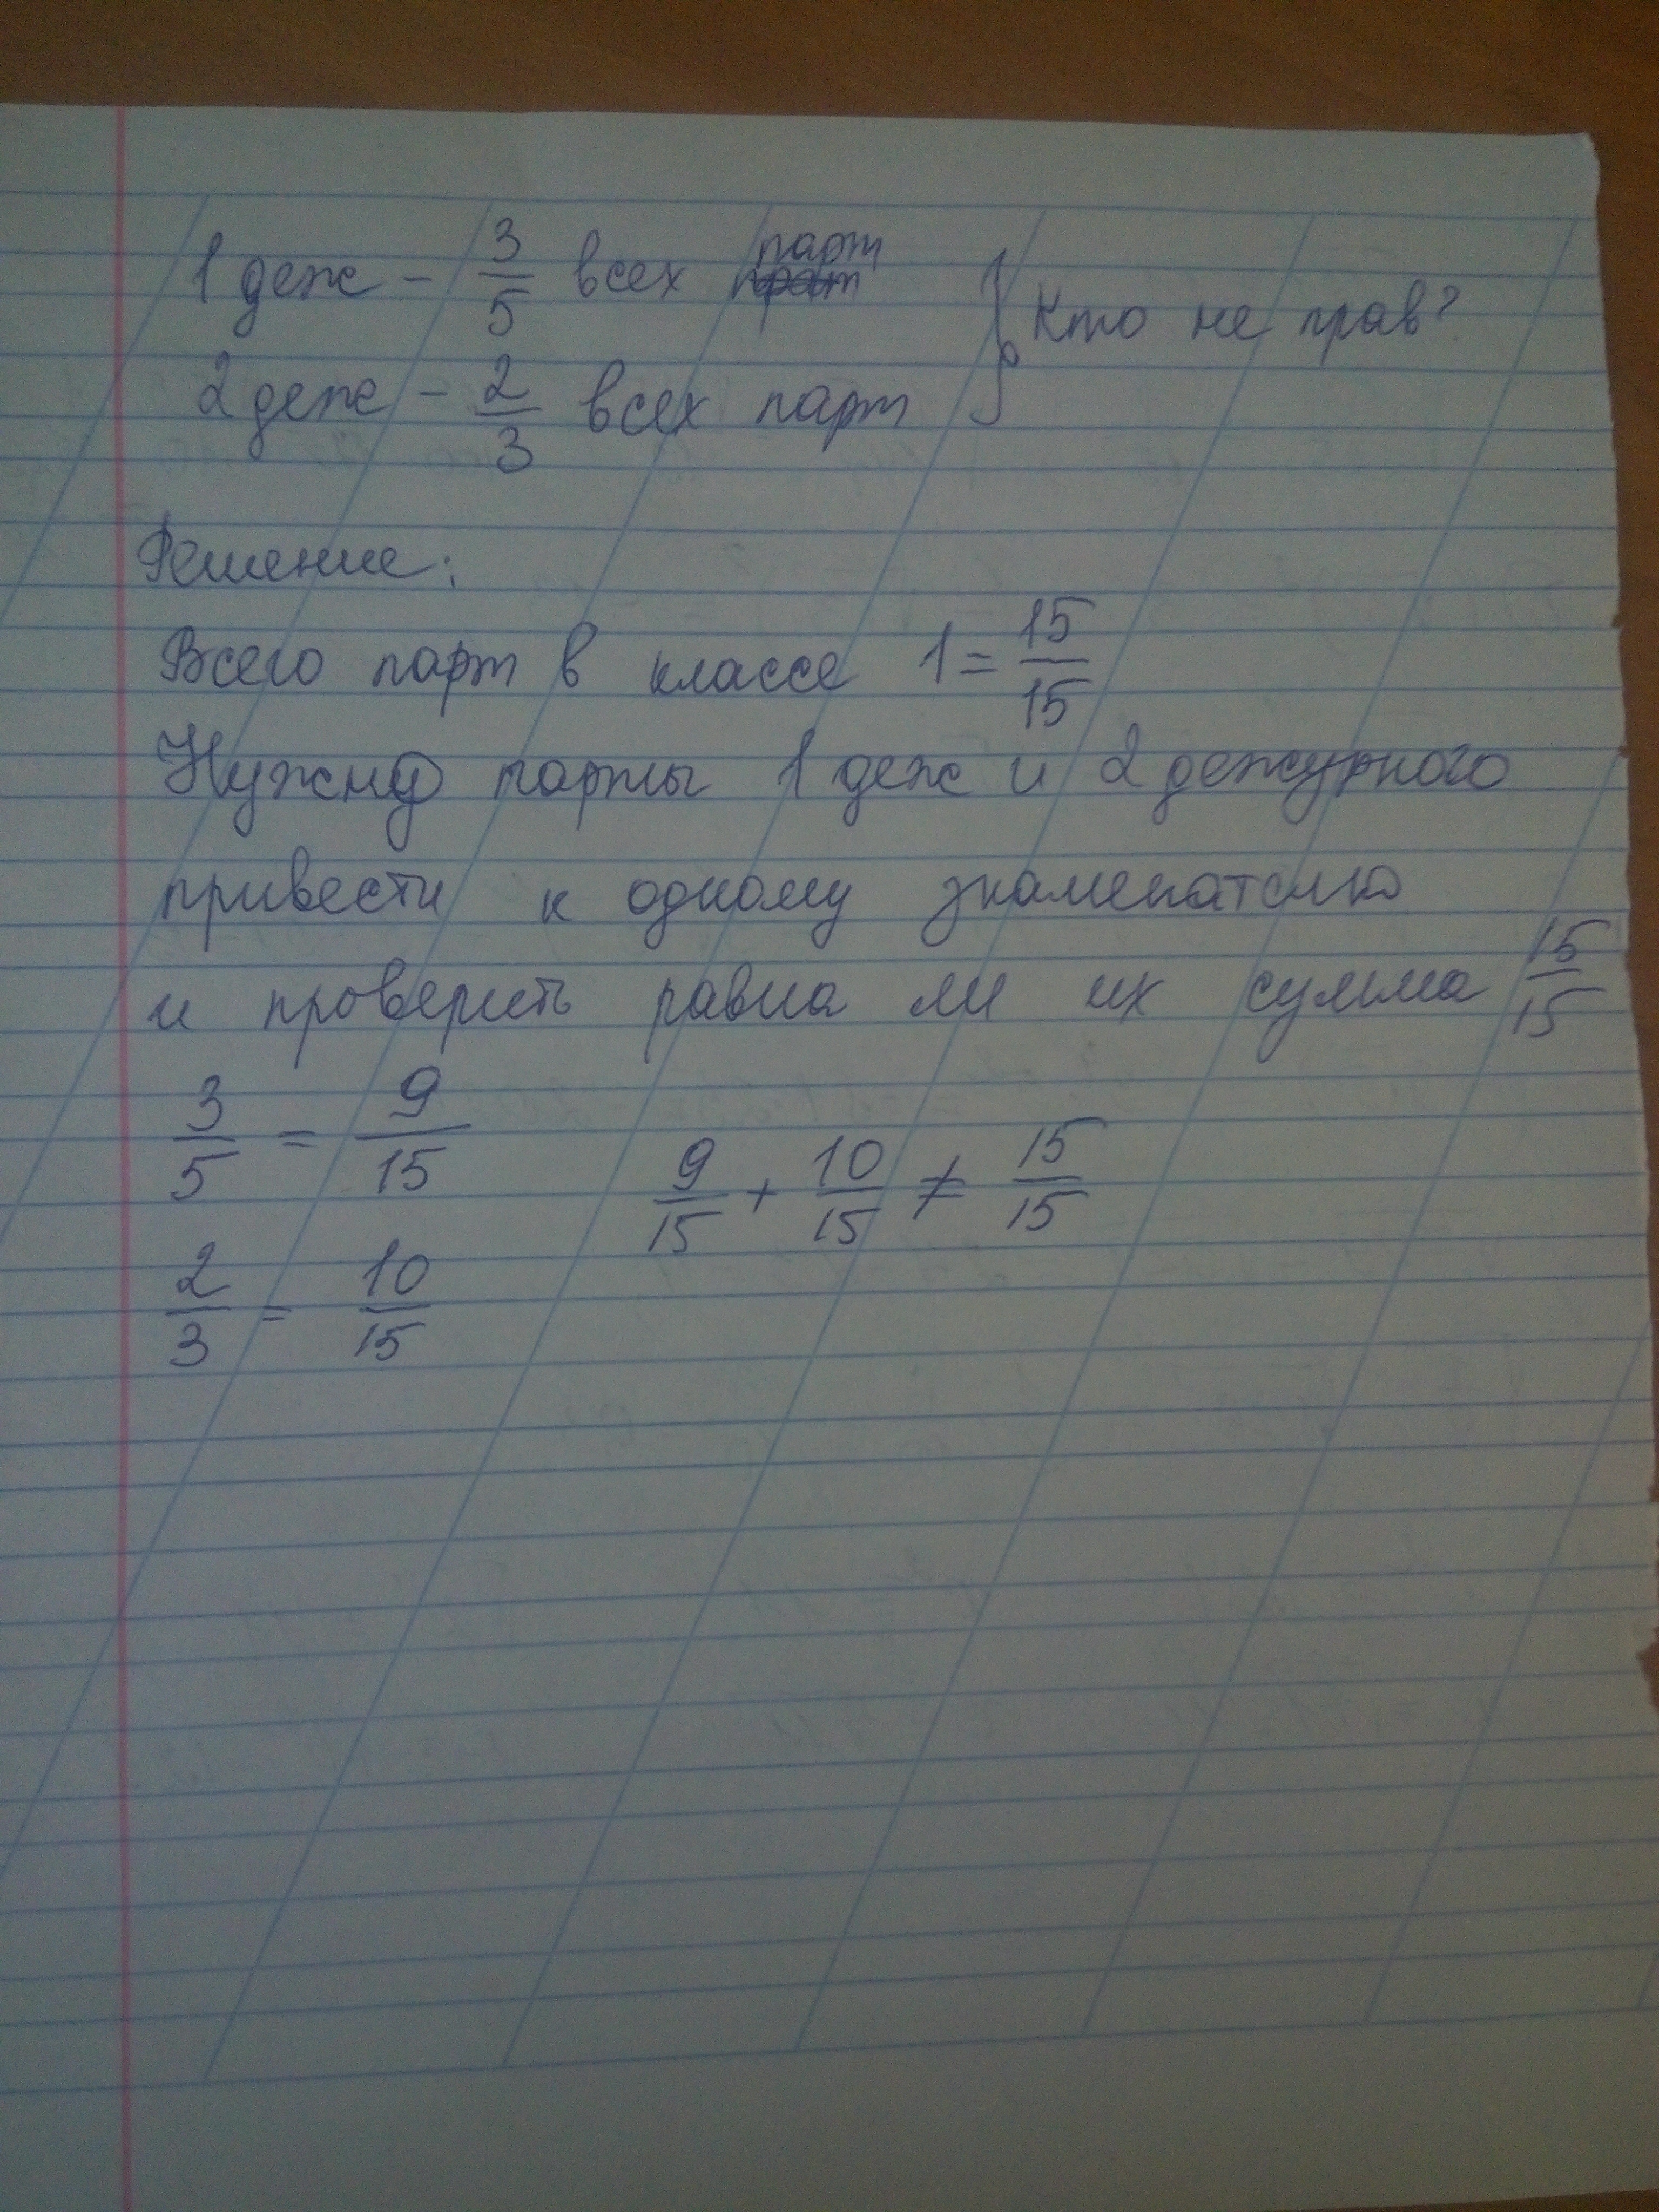 1 деж - 3/5 всех парт
2 деж - 2/3 всех парт
} Кто не прав?
Решение:
Всего парт в классе 1 = 15/15
Нужно парты 1 деж и 2 дежурного
привести к одному знаменателю
и проверить равна ли их сумма 15/15
3/5 = 9/15
9/15 + 10/15 ≠ 15/15
2/3 = 10/15